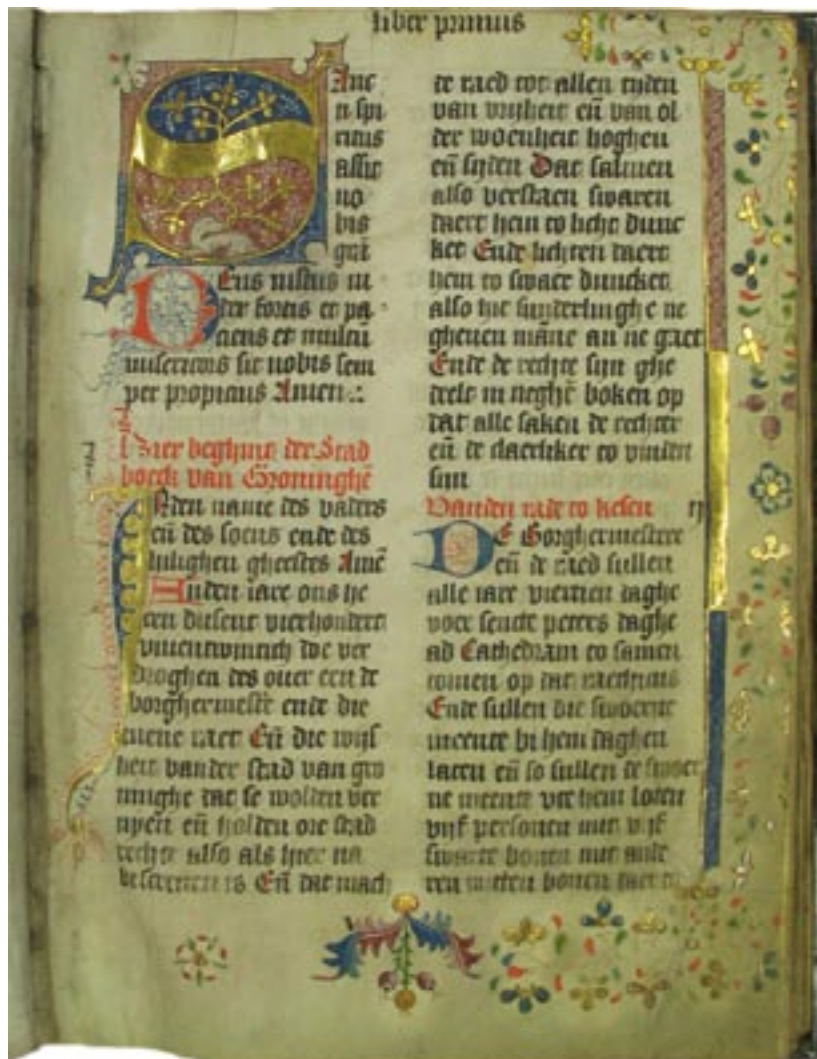 liber primus
Sanc
ti spi
ritus
assit
no
bis
grā
Deus iustus iu
dex fortis et pa
ciens et multū
misericors sit nobis sem
per propicius Amen
Hier beghint der Stad
boeck van Groninghē
INden name des vaders
eñ des soens ende des
hilighen gheestes Amē
Inden iare ons he
ren dusent vierhondert
viuentwintich doe ver
droghen des ouer een de
borghermestē ende die
niene raet Eñ die wijs
heit vander stad van gro
ninghe dat se wolden ver
nyen eñ holden ore stad
rechte also als hier na
bescreuen is Eñ dat mach
de raed tot allen tyden
van vrijheit eñ van ol
der woenheit hoghen
eñ syden Dat salmen
also verstaen swaren
daert hem to licht dunc
ket Ende lichten daert
hem to swaer duncket
also hie sunderlinghe ne
gheuen māne an ne gaet
Ende de rechte sijn ghe
deelt in neghē boken op
dat alle saken de rechter
eñ de claerliker to vinden
sijn
Vanden rade to kesen ij
DE Borghermestere
eñ de raed sullen
alle iare viertien daghe
voer sencte peters daghe
ad Cathedram to samen
comen op dat raethuus
Ende sullen die sworene
meente bi hem daghen
laten eñ so sullen de swoer
ne meente vor hem loten
vijf personen mit vijf
swarte bonen mit ande
ren witten bonen daer